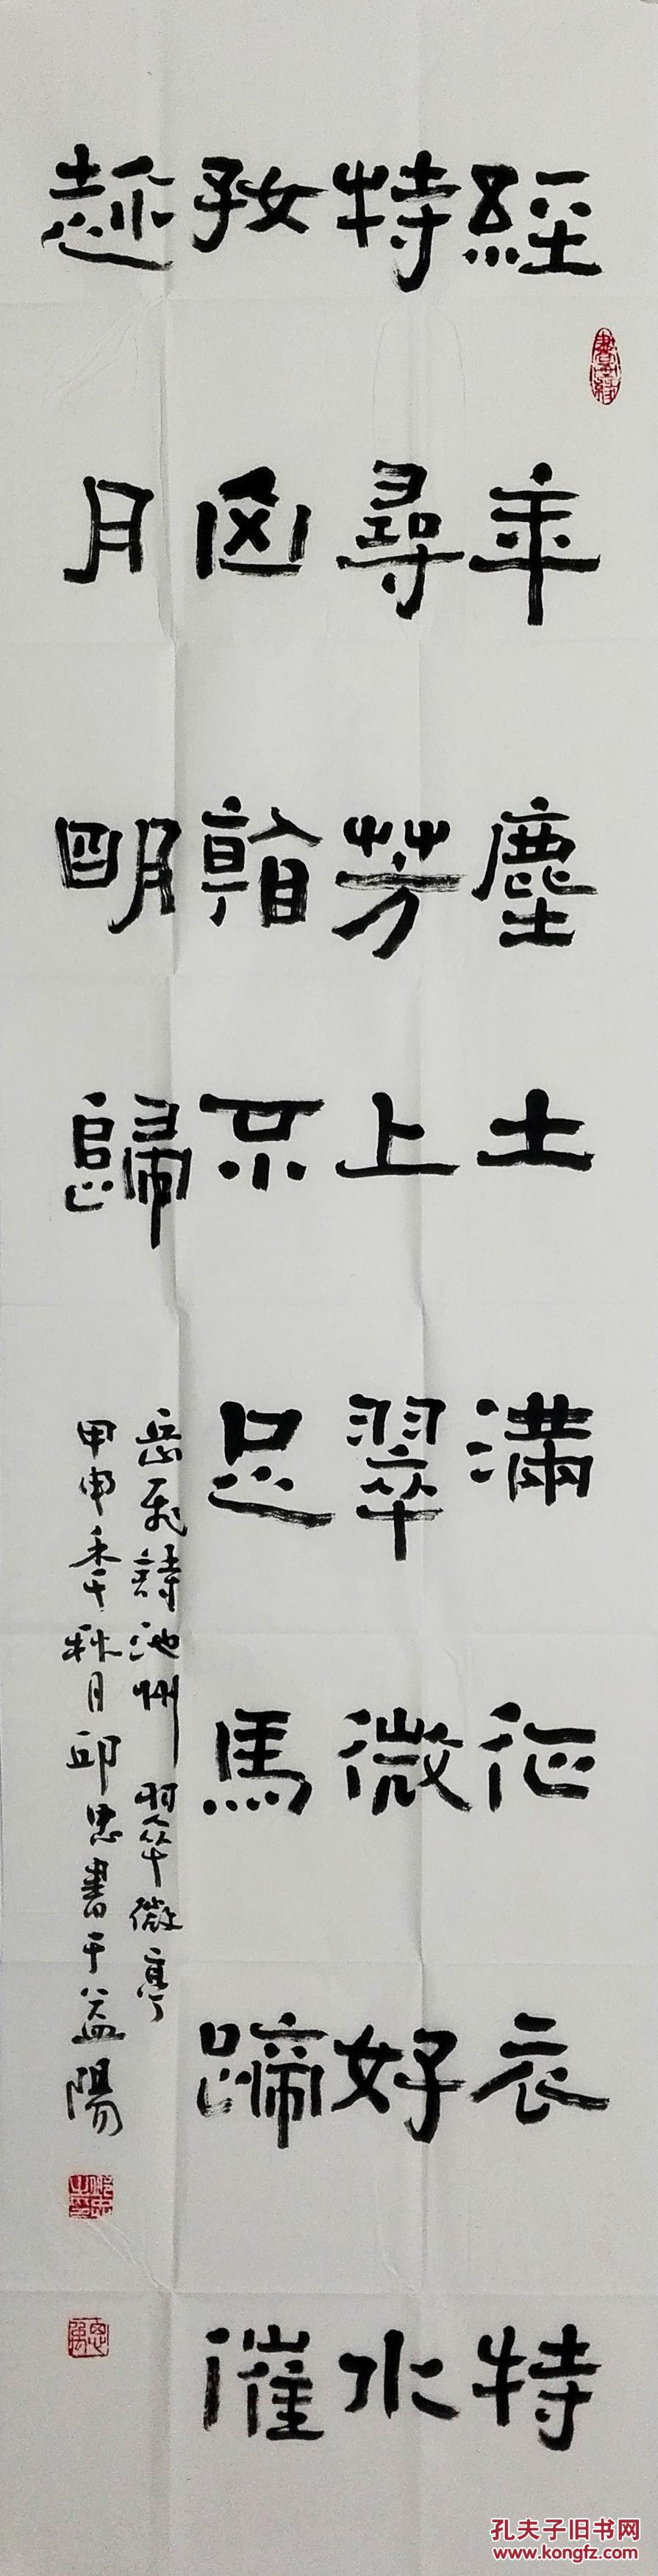 經年塵土滿征衣特
特尋芳上翠微好水
好山看不足馬蹄催
趁月明歸
岳飛詩池州翠微亭
甲申年秋月邱思書于益陽
孔夫子旧书网
www.kongfz.com